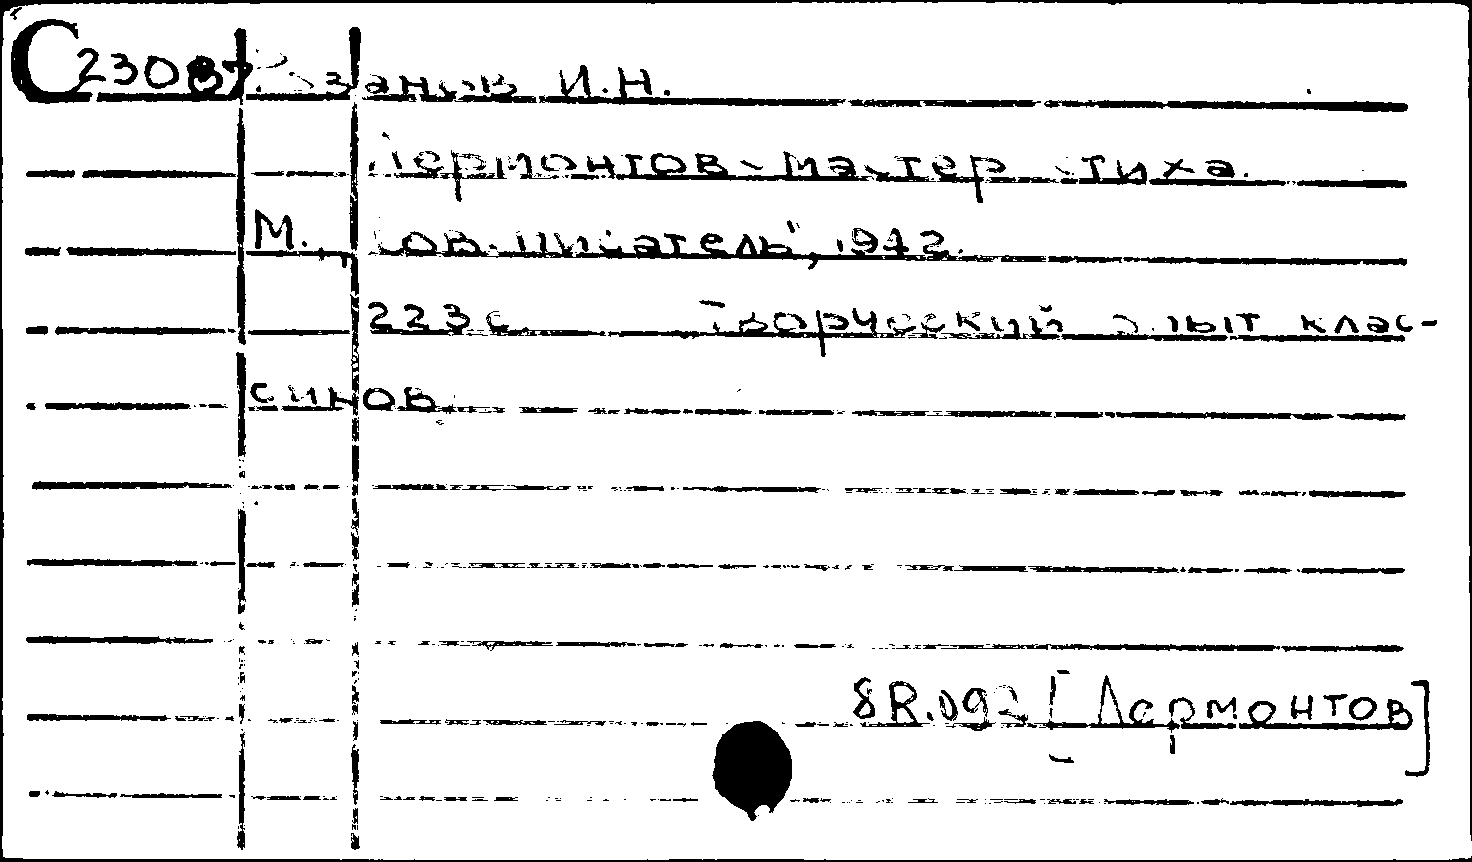 С23087 Розанов И.Н.
Лермонтов - мастер стиха.
М., „Сов. писатель", 1942.
223 с. Творческий опыт клас-
сиков.
8R.092 [Лермонтов]